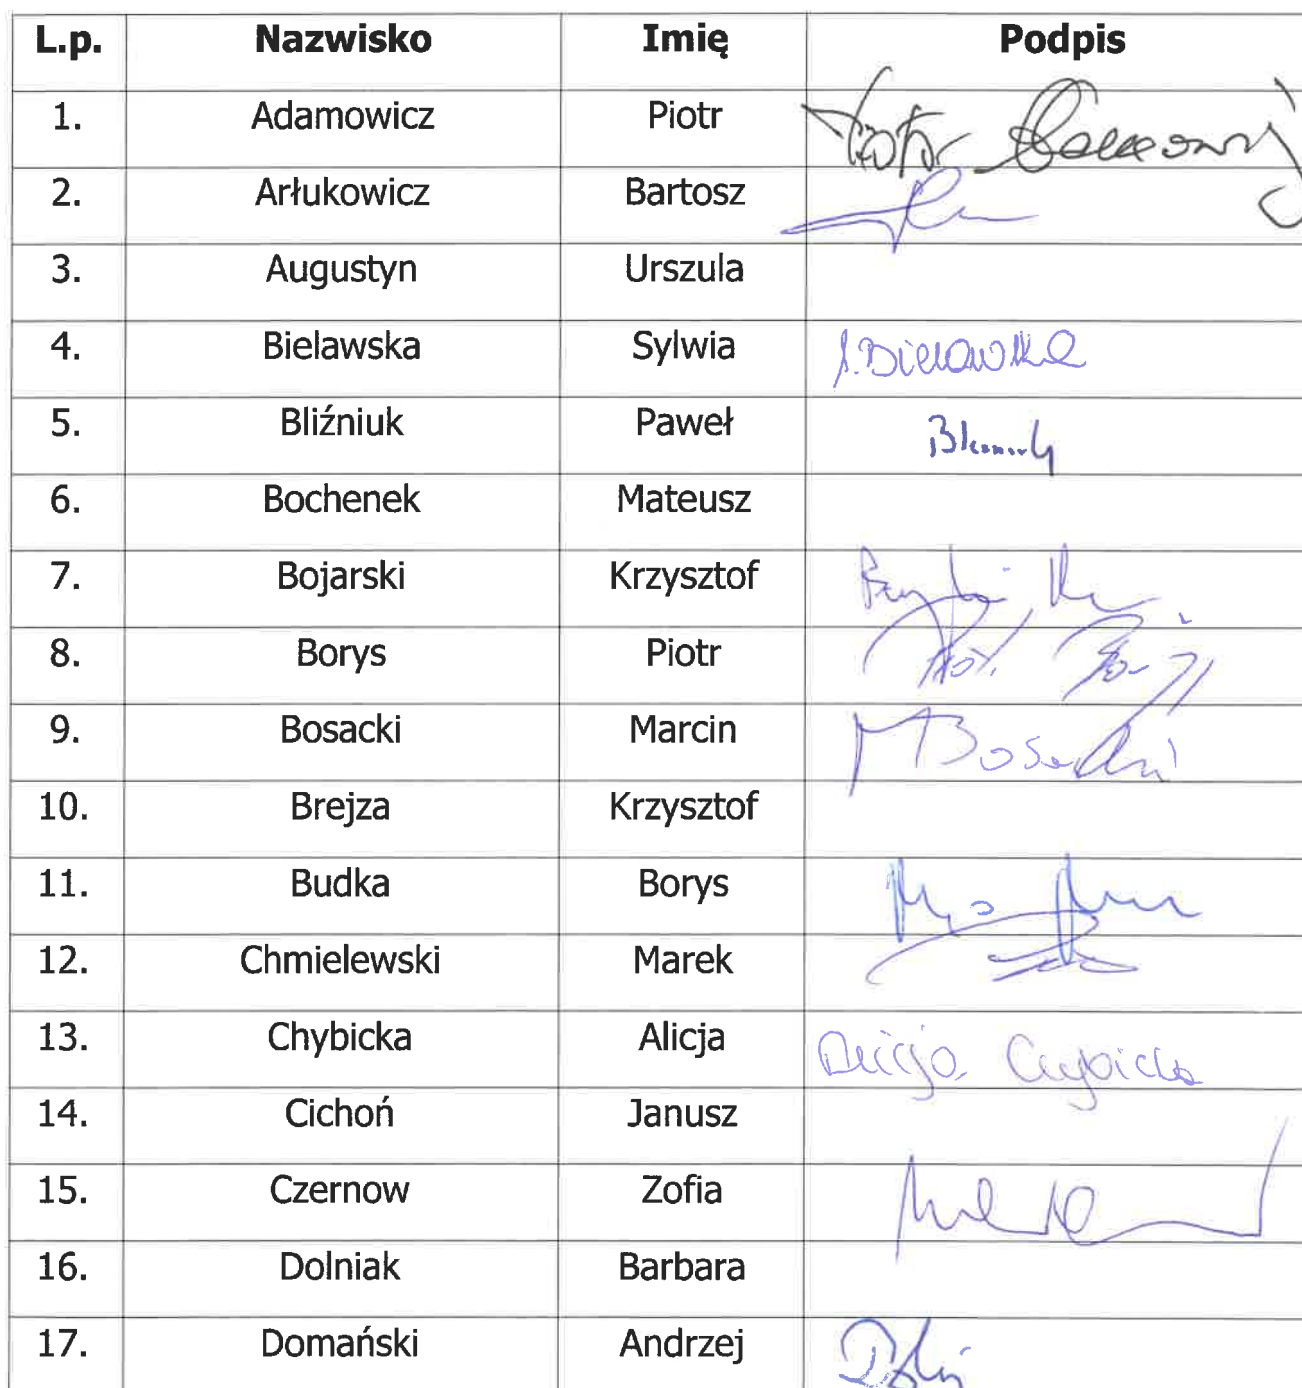 L.p. Nazwisko Imię Podpis
1. Adamowicz Piotr Piotr Adamowicz
2. Arłukowicz Bartosz
3. Augustyn Urszula
4. Bielawska Sylwia S. Bielawska
5. Bliźniuk Paweł
6. Bochenek Mateusz
7. Bojarski Krzysztof
8. Borys Piotr Piotr Borys
9. Bosacki Marcin M Bosacki
10. Brejza Krzysztof
11. Budka Borys
12. Chmielewski Marek
13. Chybicka Alicja Alicja Chybicka
14. Cichoń Janusz
15. Czernow Zofia
16. Dolniak Barbara
17. Domański Andrzej